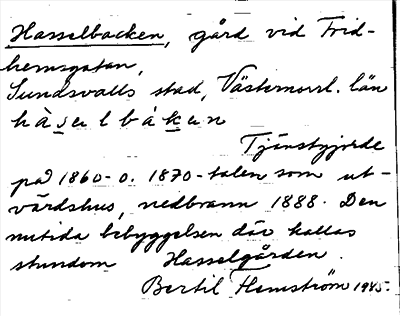 Hasselbacken, gård vid Frid-
hemsgatan,
Sundsvalls stad, Västernorrl. län
hàselbáken
Tjänstgjorde
på 1860- o. 1870-talen som ut-
värdshus, nedbrann 1888. Den
nutida bebyggelsen där kallas
stundom Hasselgården.
Bertil Flemström 1985.